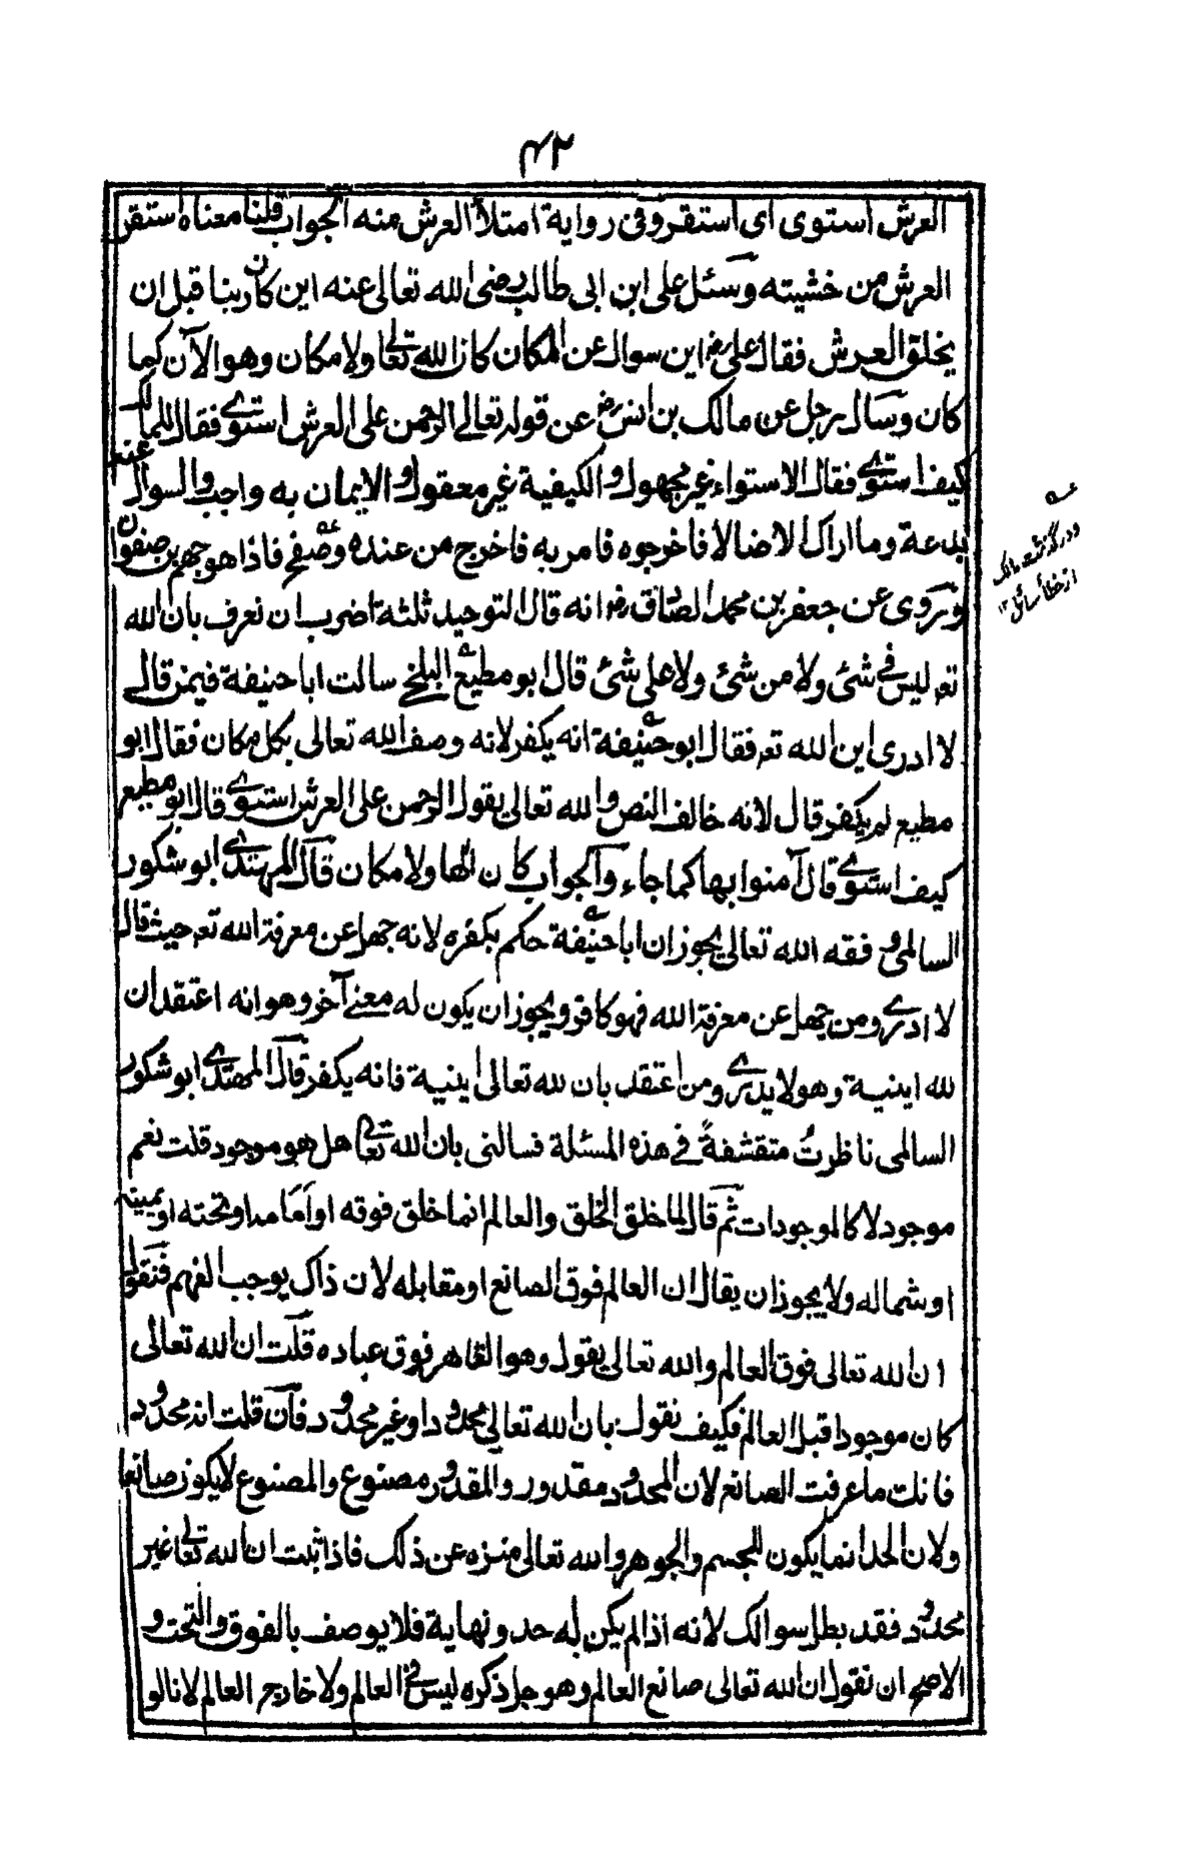 ۴۲
العرش استوى اى استقر وفى رواية امتلأ العرش منه الجواب قلنا معناه استقر
العرش من خشيته وسئل على ابن ابى طالب رضى الله تعالى عنه اين كان ربنا قبل ان
يخلق العرش فقال على رض اين سوال عن المكان كان الله تعالى ولا مكان وهو الآن كما
كان وسال رجل عن مالك بن انس رض عن قوله تعالى الرحمن على العرش استوى فقال لمالك
كيف استوى فقال الاستواء غير مجهول والكيفية غير معقول والايمان به واجب والسوال عنه
بدعة وما اراك الا ضالا فاخرجوه فامر به فاخرج من عنده وصفح فاذا هو جهم بن صفوان
وروى عن جعفر بن محمد الصادق رض انه قال التوحيد ثلثة اضرب ان نعرف بان الله
تعـ ليس فى شئ ولا من شئ ولا على شئ قال ابو مطيع البلخى سالت ابا حنيفة فيمن قال
لا ادرى اين الله تعـ فقال ابو حنيفة انه يكفر لانه وصف الله تعالى بكل مكان فقال ابو
مطيع لم يكفر قال لانه خالف النص والله تعالى يقول الرحمن على العرش استوى قال ابو مطيع
كيف استوى قال آمنوا بها كما جاء والجواب كان الٰها ولا مكان قال المهتدى ابو شكور
السالمى وفقه الله تعالى يجوز ان ابا حنيفة حكم بكفره لانه جهل عن معرفة الله تعـ حيث قال
لا ادرى ومن جهل عن معرفة الله فهو كافر ويجوز ان يكون له معنى آخر وهو انه اعتقد ان
لله اينية وهو لا يدرى ومن اعتقد بان لله تعالى اينية فانه يكفر قال المهتدى ابو شكور
السالمى ناظرتُ متقشفةً فى هذه المسئلة فسالنى بان الله تعالى هل هو موجود قلت نعم
موجود لا كالموجودات ثم قال لما خلق الخلق والعالم انما خلق فوقه او امامه او تحته او يمينه
او شماله ولا يجوز ان يقال ان العالم فوق الصانع او مقابله لان ذاك يوجب الفهم فنقول
ان الله تعالى فوق العالم والله تعالى يقول وهو القاهر فوق عباده قلت ان الله تعالى
كان موجودا قبل العالم فكيف نقول بان الله تعالى محدودا او غير محدود فان قلت انه محدود
فانك ما عرفت الصانع لان المحدود مقدور والمقدور مصنوع والمصنوع لا يكون صانعا
ولان الحد انما يكون للجسم والجوهر والله تعالى منزه عن ذلك فاذا ثبت ان الله تعالى غير
محدود فقد بطل سوالك لانه اذا لم يكن له حد ونهاية فلا يوصف بالفوق والتحت و
الاصح ان نقول ان الله تعالى صانع العالم وهو جل ذكره ليس فى العالم ولا خارج العالم لانا لو
عه
ودر گذشت مالك
از خطأ سائل ١٢